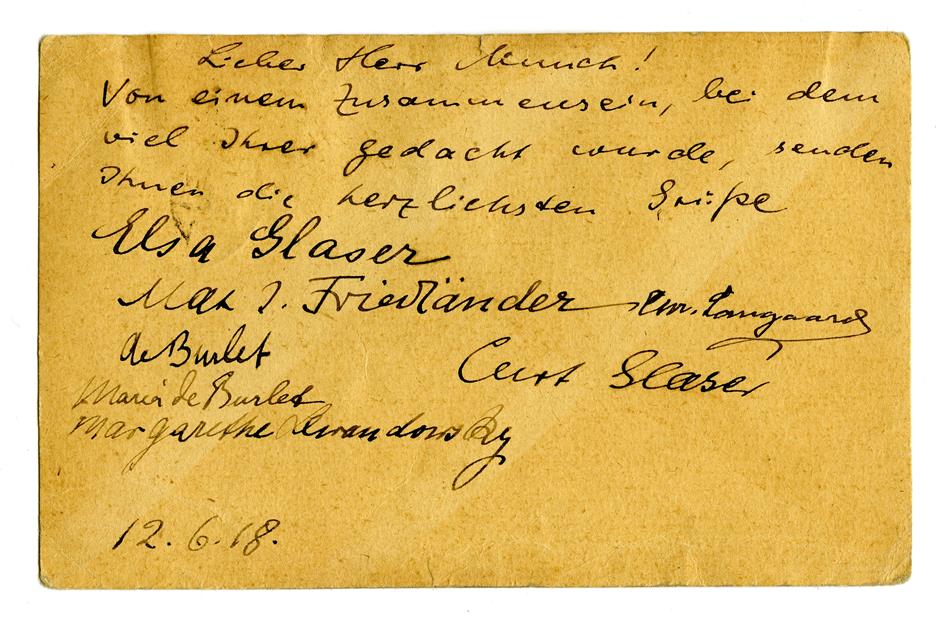 Lieber Herr Munch!
Von einem Zusammensein, bei dem
viel Ihrer gedacht wurde, senden
Ihnen die herzlichsten Grüße
Elsa Glaser
Max J. Friedländer
de Burlet
Curt Glaser
Maria de Burlet
Margarethe Lewandowsky
12.6.18.